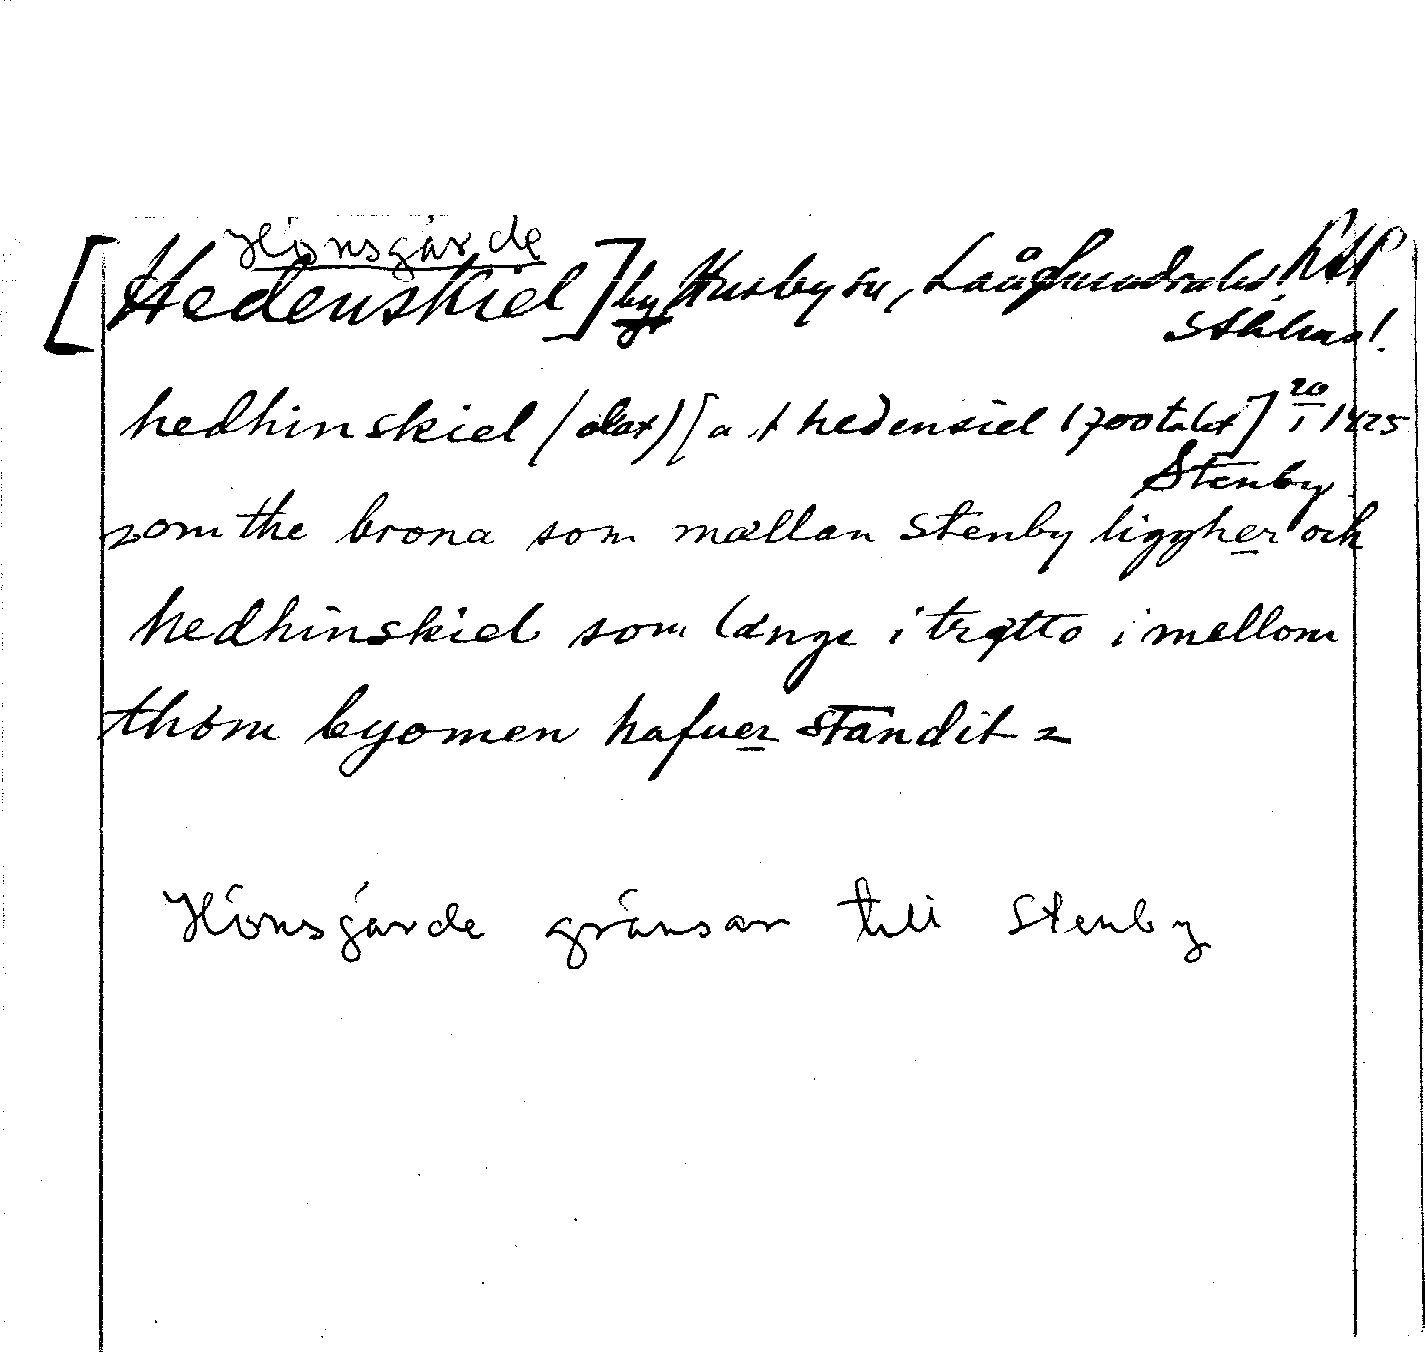 Hönsgärde
[Hedenskiel] by Husby sn, Långhundra hd!
Sthlms l.
hedhinskiel (dat) [a t hedensiel 1700talet] 20/1 1425
Stenby.
som the brona som mællan Stenby liggher och
hedhinskiel som længe i trætto i mellom
thöm byomen hafuer standit =
Hönsgärde gränsar till Stenby